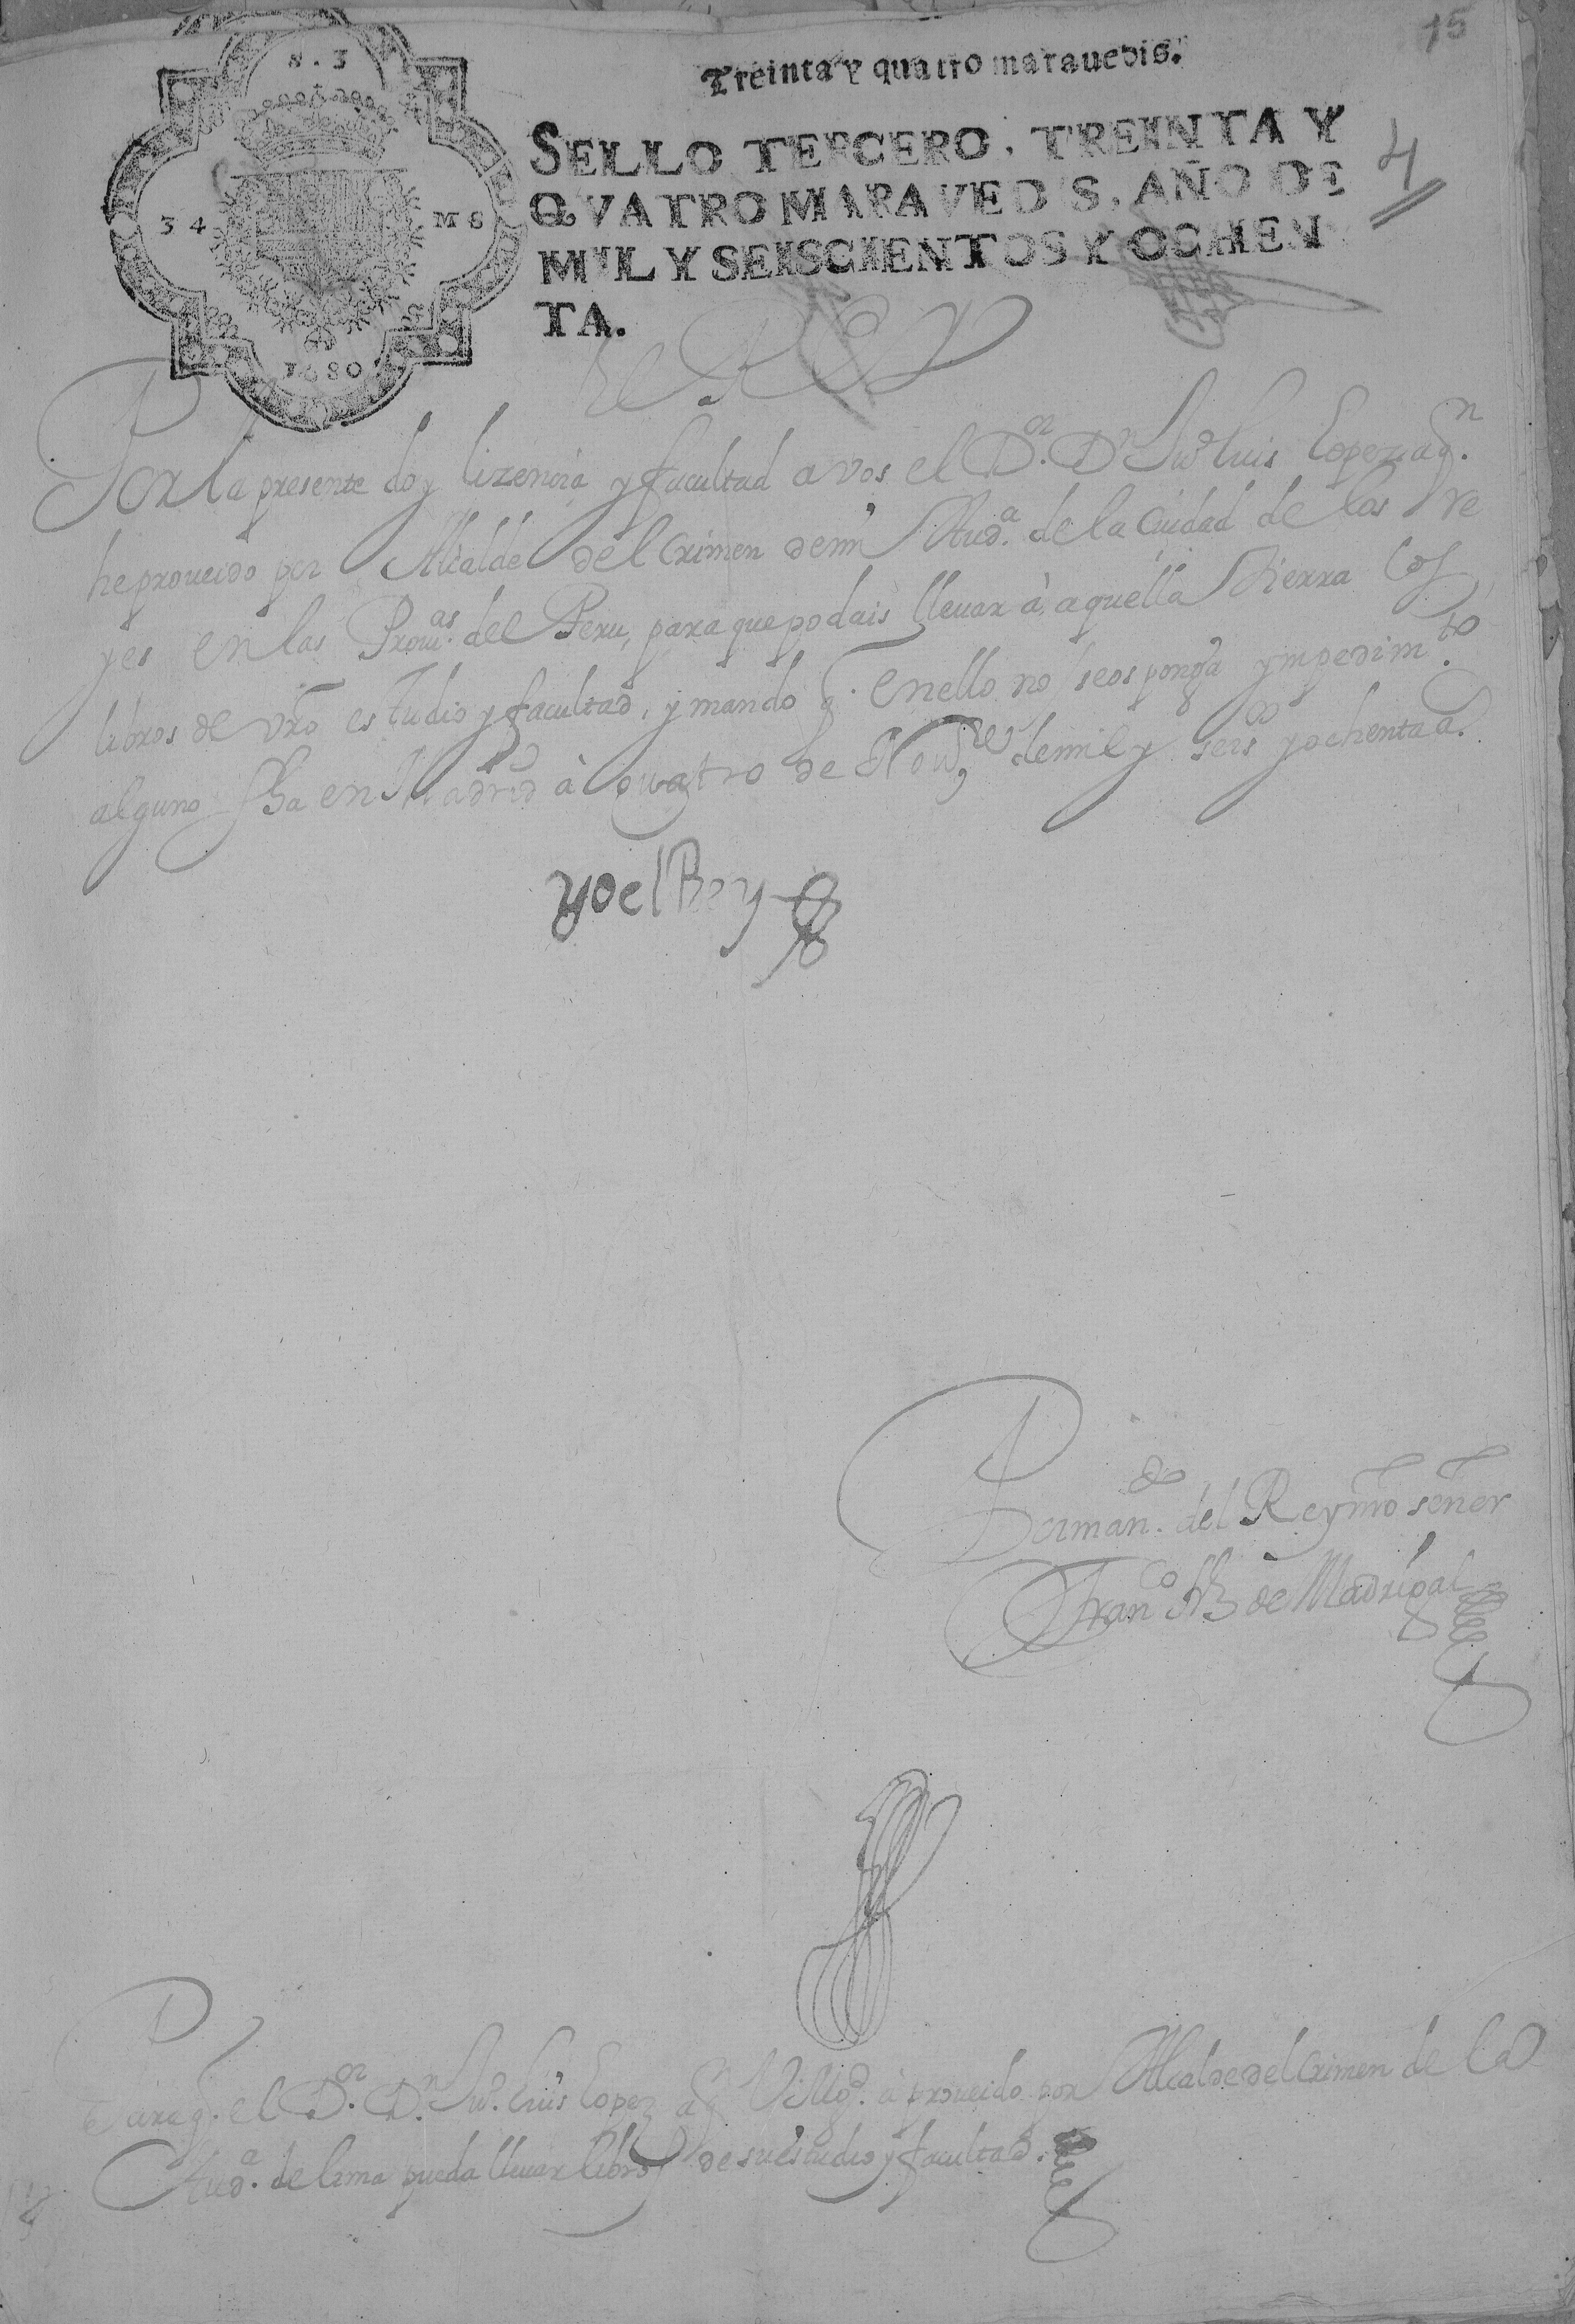 15
S. 3
34 MS
1680
Treinta y quatro marauedis.
SELLO TERCERO, TREINTA Y
QVATRO MARAVEDIS, AÑO DE
MIL Y SEISCIENTOS Y OCHEN
TA.
4
el Rey
Por la presente doy lizencia y facultad a vos el Dor. Dn. Juo Luis Lopez a qn.
he proueido por Alcalde del Crimen de mi Auda. de la Ciudad de los Re
yes en las Prouas. del Peru, para que podais lleuar à aquella tierra los
libros de vro estudio y facultad, y mando q. en ello no se os ponga ympedimto.
alguno fha en Madrid à quatro de Noure de mil y seisos y ochenta a.
Yo el Rey
Por mando. del Rey nro señor
Franco Frz de Madrigal
Para q. el Dor. Dn. Juo. Luis Lopez a q. V Mgd. à proueido por Alcalde del Crimen de la
Auda. de Lima pueda lleuar libros de su estudio y facultad.